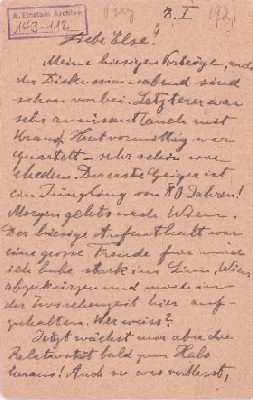 A. Einstein Archive
143-112
Prag
8. I 1921
Liebe Else!
Meine hiesigen Vorträge, und
der Diskussionsabend sind
schon vorbei. Letzterer war
sehr amüsant auch mit
Kraus. Heut vormittag war
Quartett – sehr schön
Der erste Geiger ist
ein Jüngling von 80 Jahren!
Morgen gehts nach Wien.
Der hiesige Aufenthalt war
eine grosse Freude für mich
ich habe stark im Sinn, Wien
abzukürzen und
der Zwischenzeit hier auf-
gehalten. Wer weiss?
Jetzt wächst mir aber die
Relativität bald zum Hals
heraus! Auch so was verblasst,